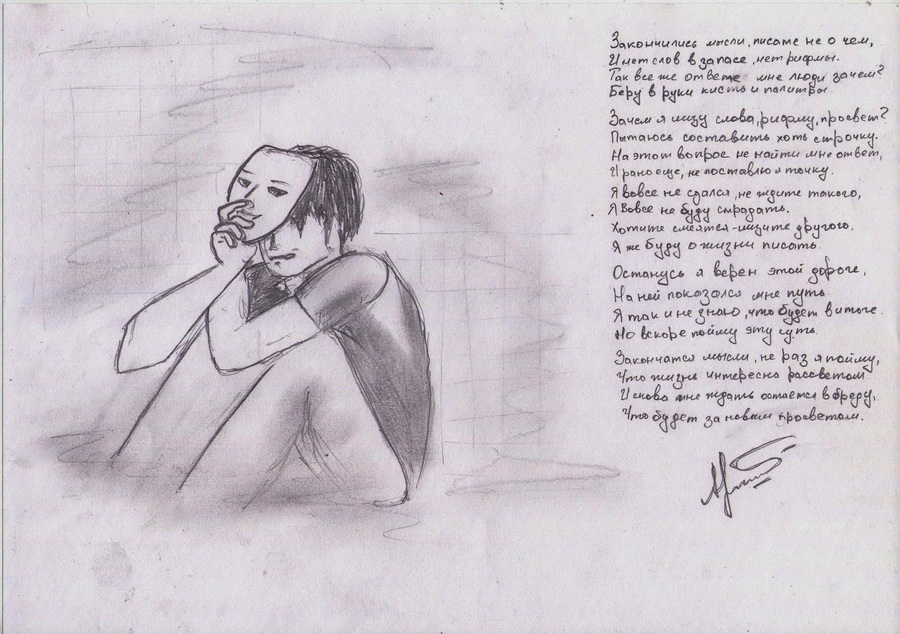 Закончились мысли, писаме не о чем,
И нет слов в запасе, нет рифмы.
Так все же ответе мне люди зачем?
Беру в руки кисть и палитры.
Зачем я ищу слова, рифму, просвет?
Пытаюсь составить хоть строчку.
На этот вопрос не найти мне ответ,
И рано еще, не поставлю я точку.
Я вовсе не сдался, не ждите такого,
Я вовсе не буду страдать.
Хотите смеятся - ищите другого.
Я же буду о жизни писать.
Останусь я верен этой дороге,
На ней показался мне путь.
Я так и не знаю, что будет в итоге.
Но вскоре пойму эту суть.
Закончатся мысли, не раз я пойму,
Что жизнь интересна рассветом
И снова мне ждать остается в бреду,
Что будет за новым просветом.